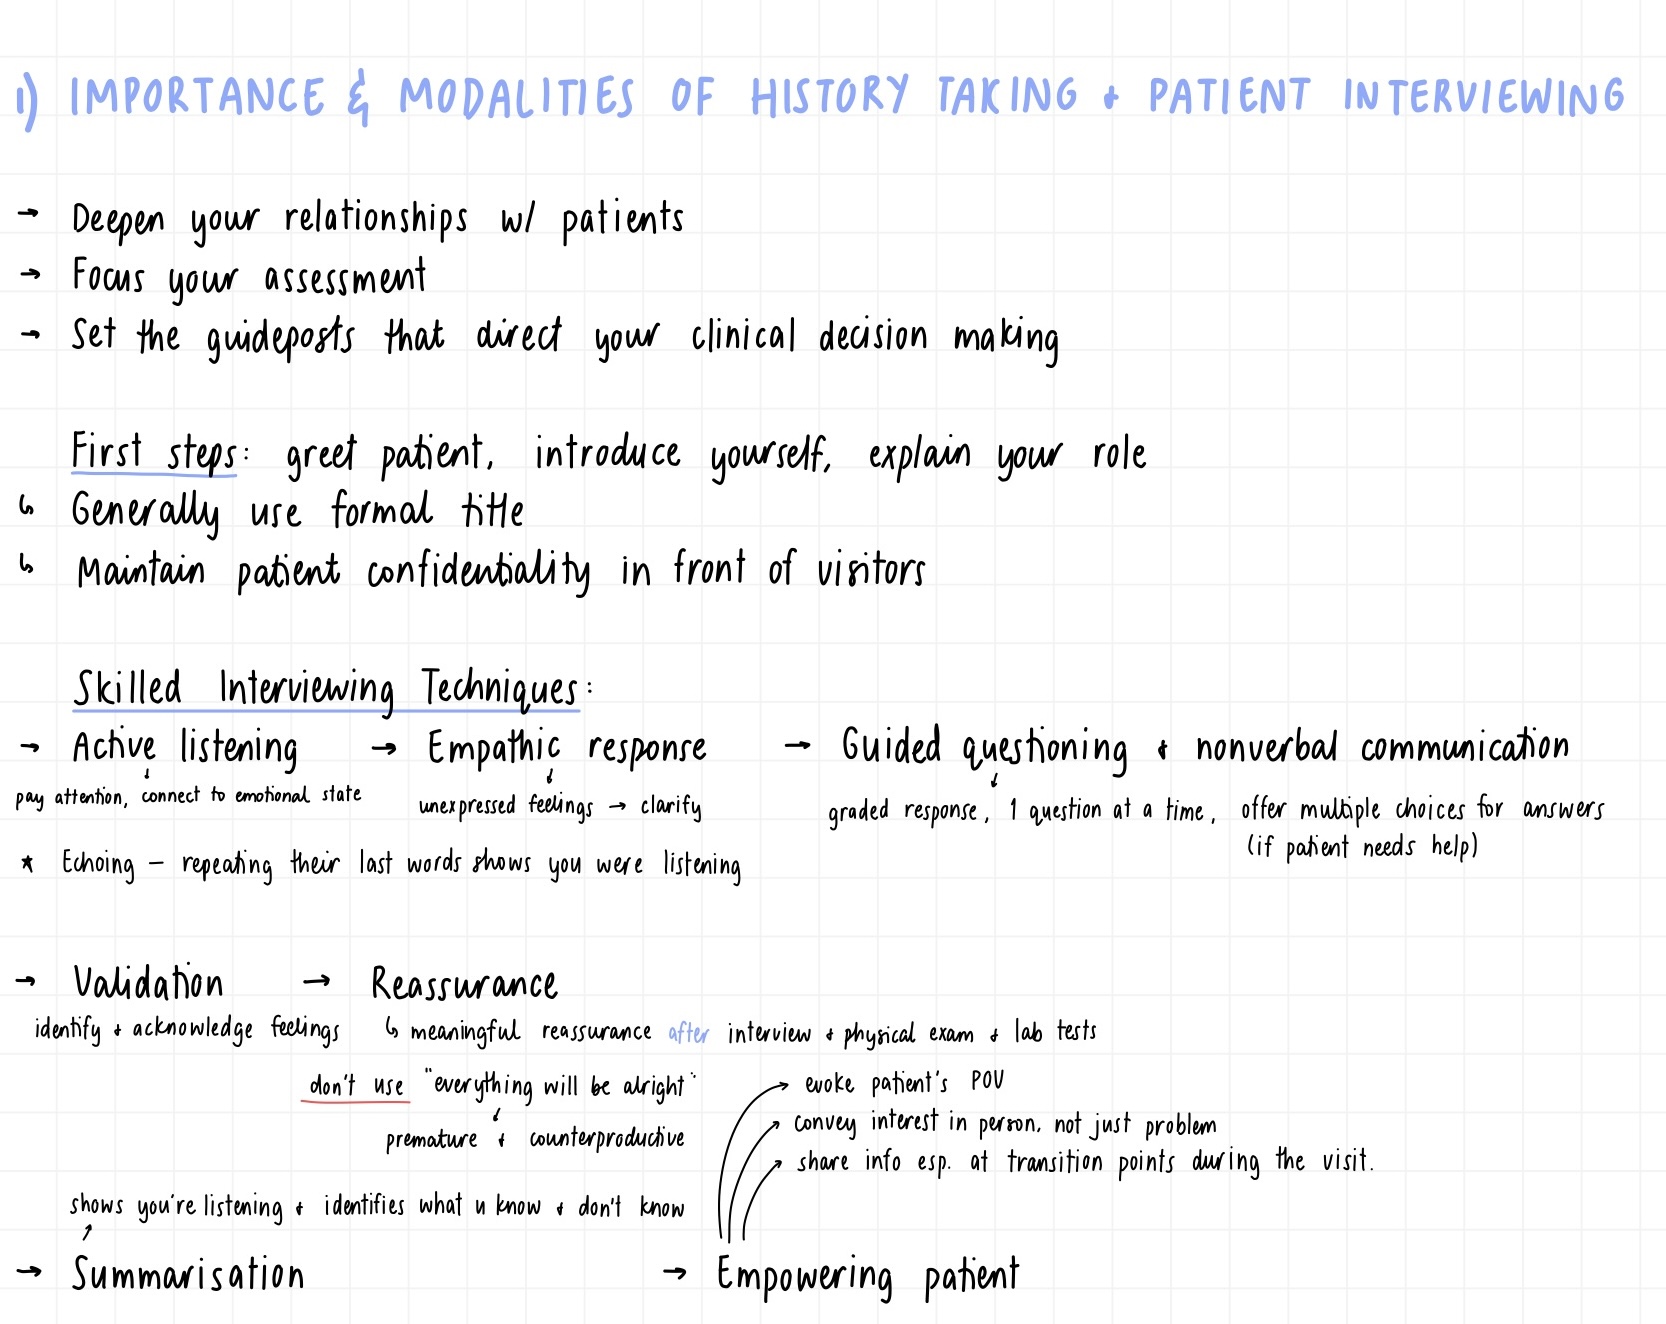 1) IMPORTANCE & MODALITIES OF HISTORY TAKING + PATIENT INTERVIEWING
→ Deepen your relationships w/ patients
→ Focus your assessment
→ Set the guideposts that direct your clinical decision making
First steps: greet patient, introduce yourself, explain your role
↳ Generally use formal title
↳ Maintain patient confidentiality in front of visitors
Skilled Interviewing Techniques:
→ Active listening → Empathic response → Guided questioning + nonverbal communication
pay attention, connect to emotional state unexpressed feelings → clarify graded response, 1 question at a time, offer multiple choices for answers
(if patient needs help)
* Echoing – repeating their last words shows you were listening
→ Validation → Reassurance
identify + acknowledge feelings ↳ meaningful reassurance after interview + physical exam + lab tests
don't use "everything will be alright"
premature + counterproductive
evoke patient's POV
convey interest in person, not just problem
share info esp. at transition points during the visit.
shows you're listening + identifies what u know + don't know
→ Summarisation → Empowering patient